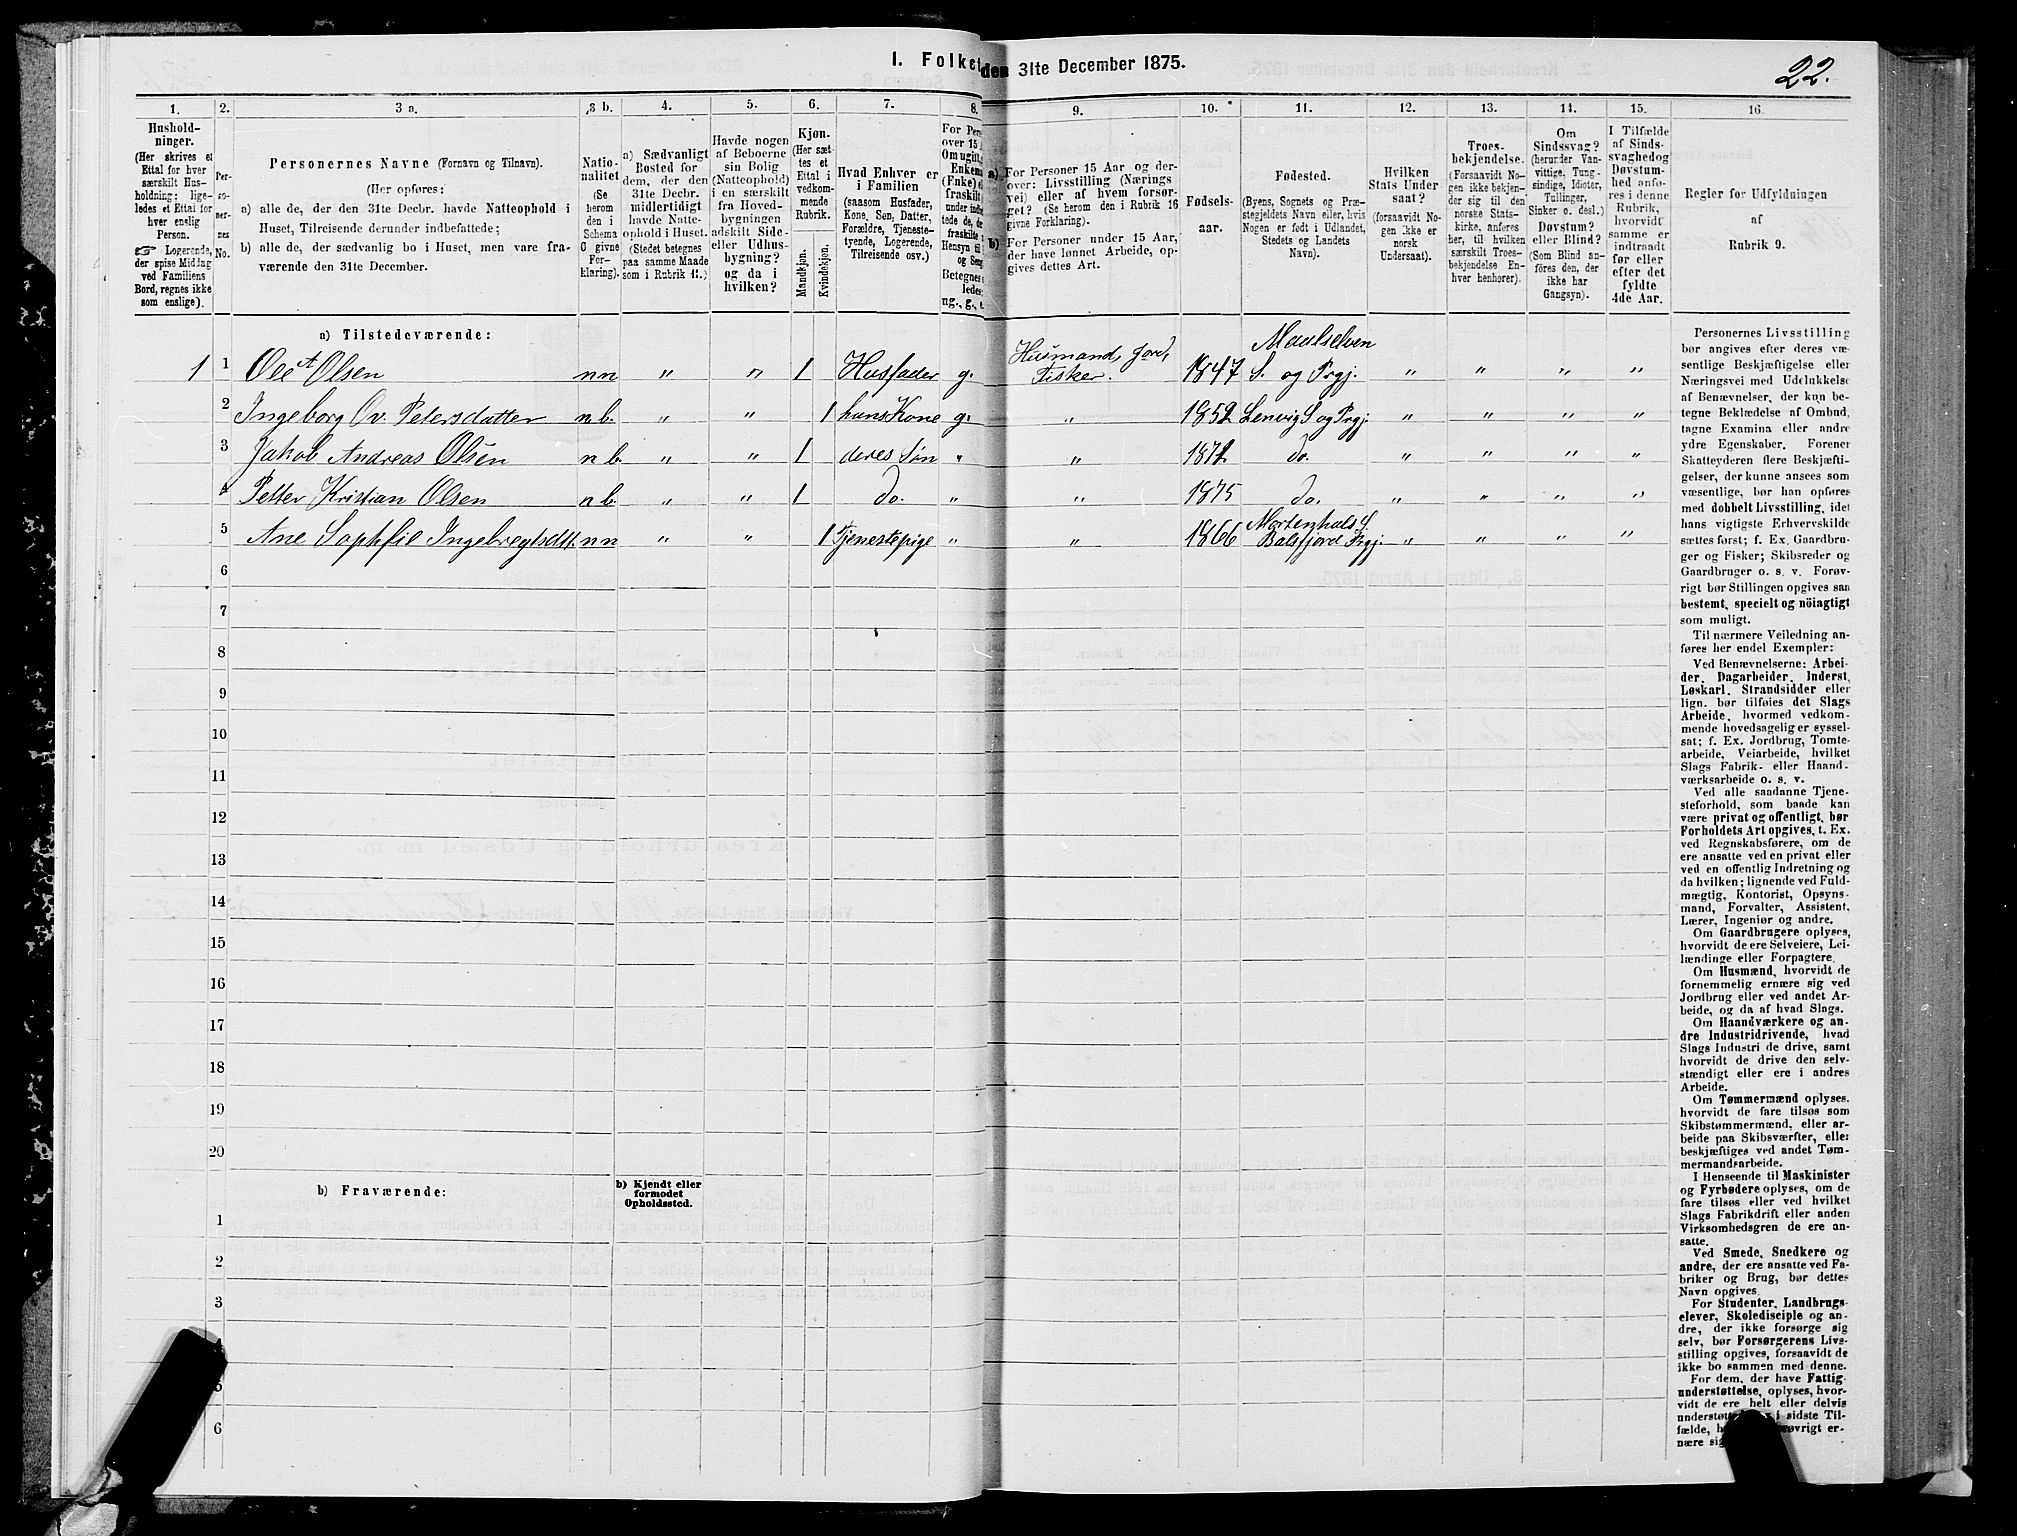 1. Folket
den 31te December 1875.
22.
1.
2.
3 a.
3 b.
4.
5.
6.
7.
8.
9.
10.
11.
12.
13.
14.
15.
16.
Hushold-
ninger.
(Her skrives et
Ettal for hver
særskilt Hus-
holdning; lige-
ledes et Ettal for
hver enslig
Person.
☞ Logerende,
der spise Middag
ved Familiens
Bord, regnes ikke
som enslige).
Per-
so-
ner-
nes
No.
Personernes Navne (Fornavn og Tilnavn).
(Her opføres:
a) alle de, der den 31te Decbr. havde Natteophold i
Huset, Tilreisende derunder indbefattede;
b) alle de, der sædvanlig bo i Huset, men vare fra-
værende den 31te December.
Natio-
nalitet
(Se
herom
den i
Schema
O givne
For-
klaring).
a) Sædvanligt
Bosted for
dem, der den
31te Decbr.
midlertidigt
havde Natte-
ophold i Huset.
(Stedet betegnes
paa samme Maade
som i Rubrik 11.)
Havde nogen
af Beboerne
sin Bolig
(Natteophold)
i en særskilt
fra Hoved-
bygningen
adskilt Side-
eller Udhus-
bygning?
og da i
hvilken?
Kjøn.
(Her sæt-
tes et
Ettal i
vedkom-
mende
Rubrik.
Mandkjøn.
Kvindekjøn.
Hvad Enhver er
i Familien
(saasom Husfader,
Kone, Søn, Datter,
Forældre, Tjeneste-
tyende, Logerende,
Tilreisende osv.)
For Pers
over 15
Om ugift,
Enkem
(Enke)
fraskilt
under indbe
tede de, der
fraskilte
Hensyn til
og Seng
Betegnes
ledes:
ug., g.,
a)
For Personer 15 Aar og der-
over: Livsstilling (Nærings
vei) eller af hvem forsør-
get? (Se herom den i Rubrik 16
givne Forklaring).
b)
For Personer under 15 Aar,
der have lønnet Arbeide, op-
gives dettes Art.
Fødsels-
aar.
Fødested.
(Byens, Sognets og Præ-
stegjeldets Navn eller, hvis
Nogen er født i Udlandet,
Stedets og Landets
Navn).
Hvilken
Stats Under
saat?
(forsaavidt No-
gen ikke er
norsk
Undersaat).
Troes-
bekjendelse.
(Forsaavidt No-
gen ikke bekjen-
der sig til den
norske Stats-
kirke, anføres
her, til hvilken
særskilt Troes-
bekjendelse En-
hver henhører).
Om
Sindssvag?
(herunder Van-
vittige, Tung-
sindige, Idioter,
Tullinger,
Sinker o. desl.)
Døvstum?
eller Blind?
(Som Blind an-
føres den, der
ikke har
Gangsyn).
I Tilfælde
af Sinds-
svaghed og
Døvstum-
hed anfø-
res i denne
Rubrik,
hvorvidt
samme er
indtraadt
før eller
efter det
fyldte
4de Aar.
Regler for Udfyldningen
af
Rubrik 9.
a) Tilstedeværende:
1 1 Ole A Olsen nn " " 1 Husfader g. Husmand, Jord, Fisker. 1847 Maalselven S. og Prgj. " " " "
2 Ingeborg Ov. Petersdatter nb. " " 1 hans Kone g. " 1852 Lenvig S og Prgj. " " " "
3 Jakob Andreas Olsen nb. " " 1 deres Søn " " 1871 do. " " " "
4 Petter Kristian Olsen nb. " " 1 do. " " 1875 do. " " " "
5 Ane Sophfie Ingebregtsdt. nn " " 1 Tjenestepige " " 1866 Mortenhals S. Balsfjord Prgj. " " " "
6
7
8
9
10
11
12
13
14
15
16
17
18
19
20
b) Fraværende:
b) Kjendt eller
formodet
Opholdssted.
1
2
3
5
6
Personernes Livsstilling
bør angives efter deres væ-
sentlige Beskjæftigelse eller
Næringsvei med Udelukkelse
af Benævnelser, der kun be-
tegne Beklædelse af Ombud,
tagne Examina eller andre
ydre Egenskaber. Forener
Skatteyderen flere Beskjæfti-
gelser, der kunne ansees som
væsentlige, bør han opføres
med dobbelt Livsstilling, idet
hans vigtigste Erhvervskilde
sættes først; f. Ex. Gaardbru-
ger og Fisker; Skibsreder og
Gaardbruger o. s. v. Forøv-
rigt bør Stillingen opgives saa
bestemt, specielt og nöiagtigt
som muligt.
Til nærmere Veiledning an-
føres her endel Exempler:
Ved Benævnelserne: Arbei-
der, Dagarbeider, Inderst,
Løskarl, Strandsidder eller
lign. bør tilføies det Slags
Arbeide, hvormed vedkom-
mende hovedsagelig er syssel-
sat; f. Ex. Jordbrug, Tomte-
arbeide, Veiarbeide, hvilket
Slags Fabrik- eller Haand-
værksarbeide o. s. v.
Ved alle saadanne Tjene-
steforhold, som baade kan
være privat og offentligt, bør
Forholdets Art opgives, t. Ex.
ved Regnskabsførere, om de
ere ansatte ved en privat eller
ved en offentlig Indretning og
da hvilken; lignende ved Fuld-
mægtig, Kontorist, Opsyns-
mand, Forvalter, Assistent,
Lærer, Ingeniør og andre.
Om Gaardbrugere oplyses,
hvorvidt de ere Selveiere, Lei-
lændinge eller Forpagtere.
Om Husmænd, hvorvidt de
fornemmelig ernære sig ved
Jordbrug eller ved andet Ar-
beide, og da af hvad Slags.
Om Haandværkere og an-
dre Industridrivende, hvad
Slags Industri de drive, samt
hvorvidt de drive den selv-
stændigt eller ere i andres
Arbeide.
Om Tømmermænd oplyses,
hvorvidt de fare tilsøs som
Skibstømmermænd, eller ar-
beide paa Skibsværfter, eller
beskjæftiges ved andet Tøm-
mermandsarbeide.
I Henseende til Maskinister
og Fyrbødere oplyses, om de
fare tilsøs eller ved hvilket
Slags Fabrikdrift eller anden
Virksomhedsgren de ere an-
satte.
Ved Smede, Snedkere og
andre, der ere ansatte ved Fa-
briker og Brug, bør dettes
Navn opgives.
For Studenter, Landbrugs-
elever, Skoledisciple og an-
dre, der ikke forsørge sig
selv, bør Forsørgerens Livs-
stilling opgives, forsaavidt de
ikke bo sammen med denne.
For dem, der have Fattig-
understøttelse, oplyses, hvor-
vidt de ere helt eller delvis
understøtt i sidste Til-
fælde, øvrigt er-
nære sig